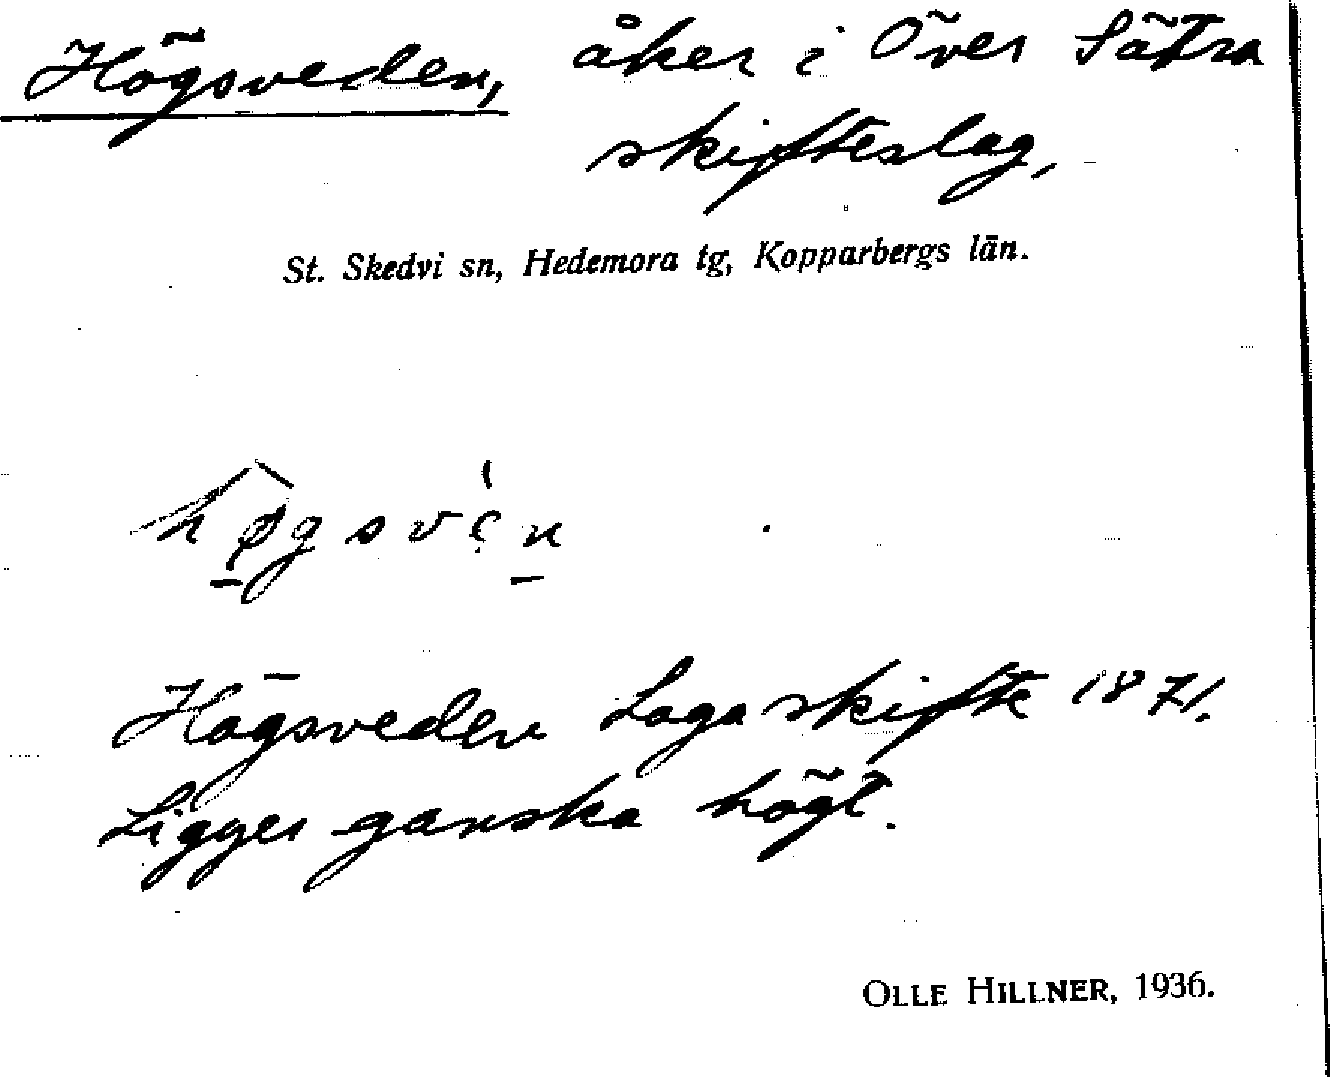 Högsveden, åker i Över Sätra
skifteslag,
St. Skedvi sn, Hedemora tg, Kopparbergs län.
Högsveden Laga skifte 1871.
Ligger ganska högt.
OLLE HILLNER, 1936.